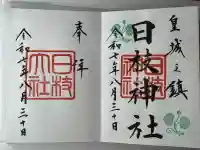 皇城之鎮
日枝神社
令和七年八月三十日
奉拝
日枝
大社
令和七年八月三十日